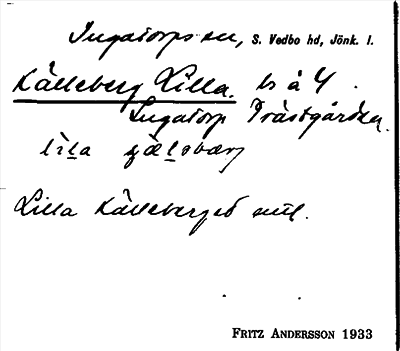 Ingatorps sn, S. Vedbo hd, Jönk. l.
Källeberg Lilla. ls å 4.
Ingatorp Prästgården.
lila
Lilla Källeberg
FRITZ ANDERSSON 1933